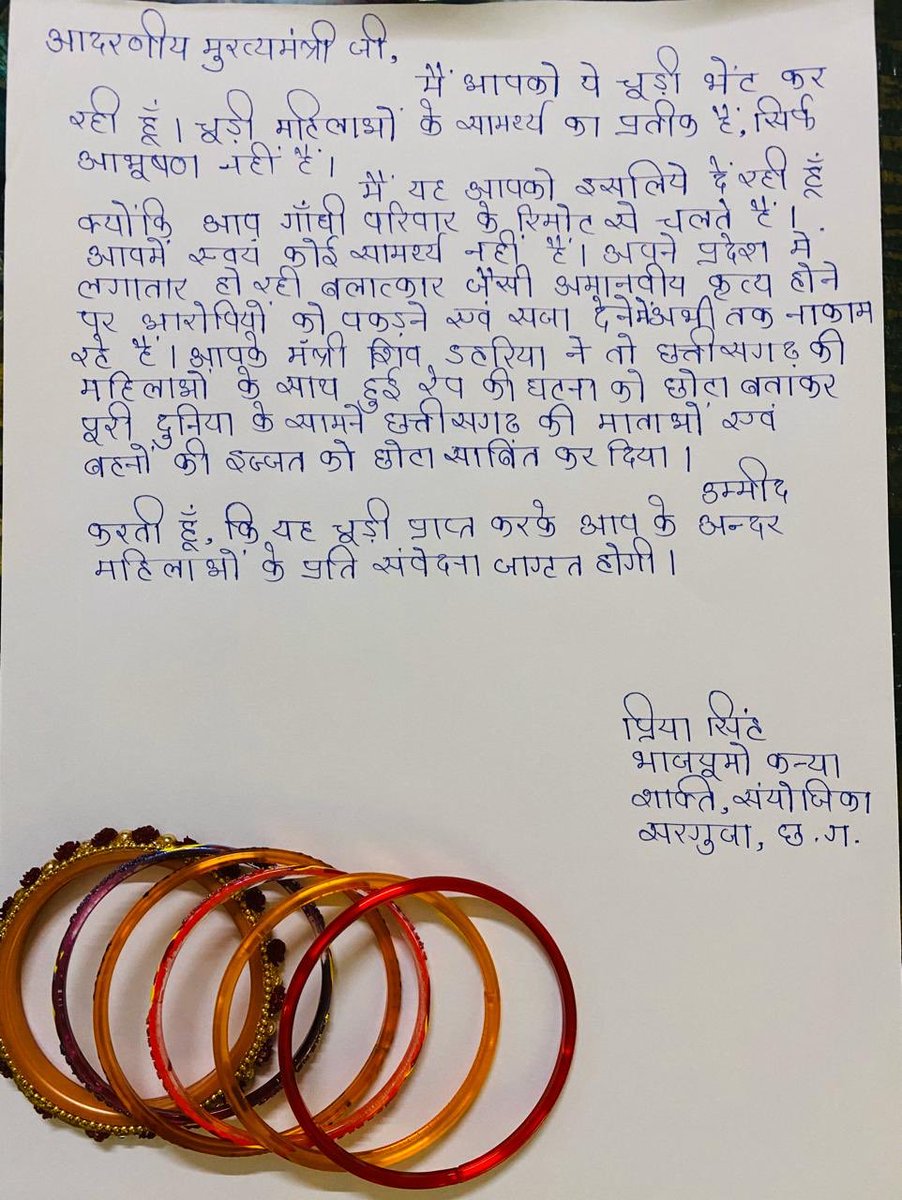 आदरणीय मुख्यमंत्री जी,
मैं आपको ये चूड़ी भेंट कर
रही हूँ। चूड़ी महिलाओं के सामर्थ्य का प्रतीक है, सिर्फ
आभूषण नहीं है।
मैं यह आपको इसलिये दे रही हूँ
क्योंकि आप गाँधी परिवार के रिमोट से चलते हैं।
आपमें स्वयं कोई सामर्थ्य नहीं है। अपने प्रदेश में
लगातार हो रही बलात्कार जैसी अमानवीय कृत्य होने
पर आरोपियों को पकड़ने एवं सजा देनेमें अभी तक नाकाम
रहे हैं। आपके मंत्री शिव डहरिया ने तो छत्तीसगढ की
महिलाओं के साथ हुई रेप की घटना को छोटा बताकर
पूरी दुनिया के सामने छत्तीसगढ की माताओं एवं
बहनों की इज्जत को छोटा साबित कर दिया।
उम्मीद
करती हूँ, कि यह चूड़ी प्राप्त करके आप के अन्दर
महिलाओं के प्रति संवेदना जागृत होगी।
प्रिया सिंह
भाजयूमो कन्या
शक्ति, संयोजिका
सरगुजा, छ.ग.